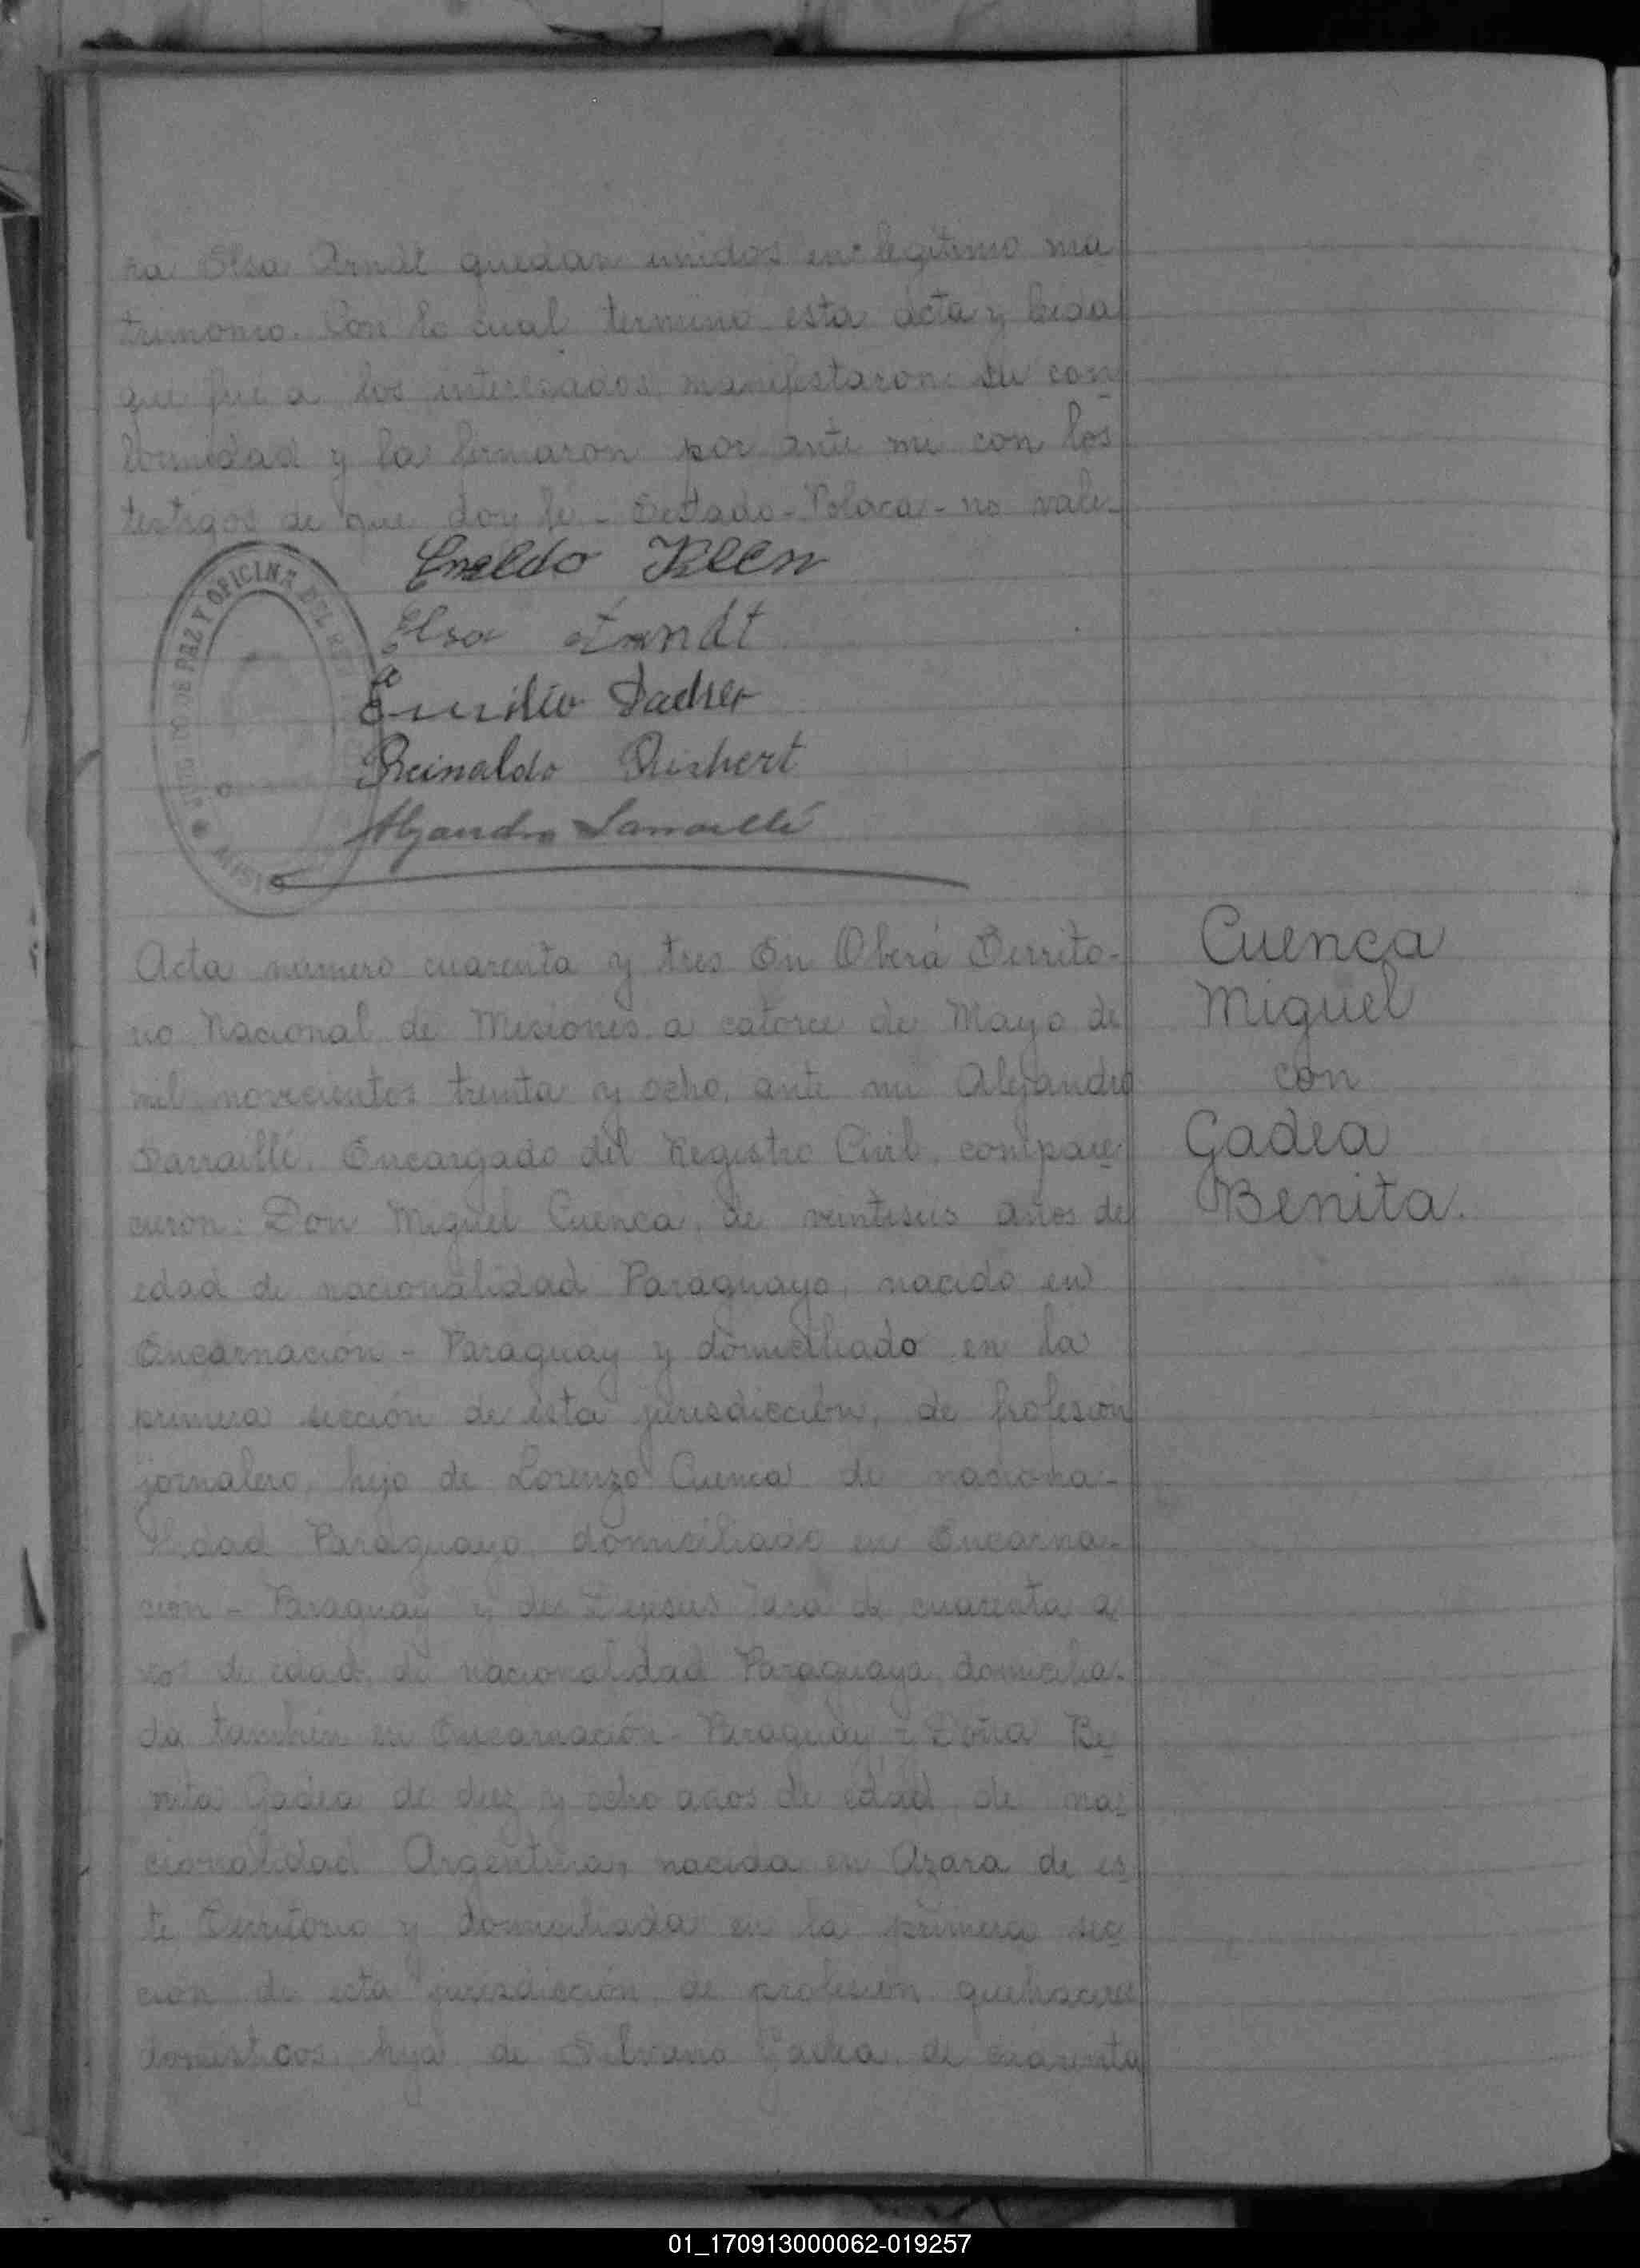 ña Elsa Arndt quedan unidos en legítimo ma
trimonio. Con lo cual termino esta acta y leida
que fué a los interesados, manifestaron su con
formidad y la firmaron por ante mi con los
testigos de que doy fé - Testado - Polaca - no vale -
Elsa Arndt
Emilio
Reinaldo
JUZGADO DE PAZ Y OFICINA DEL
Acta número cuarenta y tres En Oberá Territo-
rio Nacional de Misiones a catorce de Mayo de
mil novecientos treinta y ocho, ante mi Alejandro
Encargado del Registro Civil, compare
cieron: Don Miguel Cuenca, de veintiseis años de
edad de nacionalidad Paraguayo, nacido en
Encarnación - Paraguay y domiciliado en la
primera sección de esta jurisdicción, de profesion
jornalero, hijo de Lorenzo Cuenca de naciona-
lidad Paraguayo, domiciliado en Encarna-
cion - Paraguay y de Dejesus Jara de cuarenta a
ños de edad, de nacionalidad Paraguaya, domicilia-
da también en Encarnación - Paraguay, y Doña Be
nita Gadea de diez y ocho años de edad, de na-
cionalidad Argentina, nacida en Azara de es
te Territorio y domiciliada en la primera sec
cion de esta jurisdicción, de profesión quehaceres
domésticos, hija de Silvano Gadea, de cuarenta
Cuenca
Miguel
con
Gadea
Benita.
01_170913000062-019257